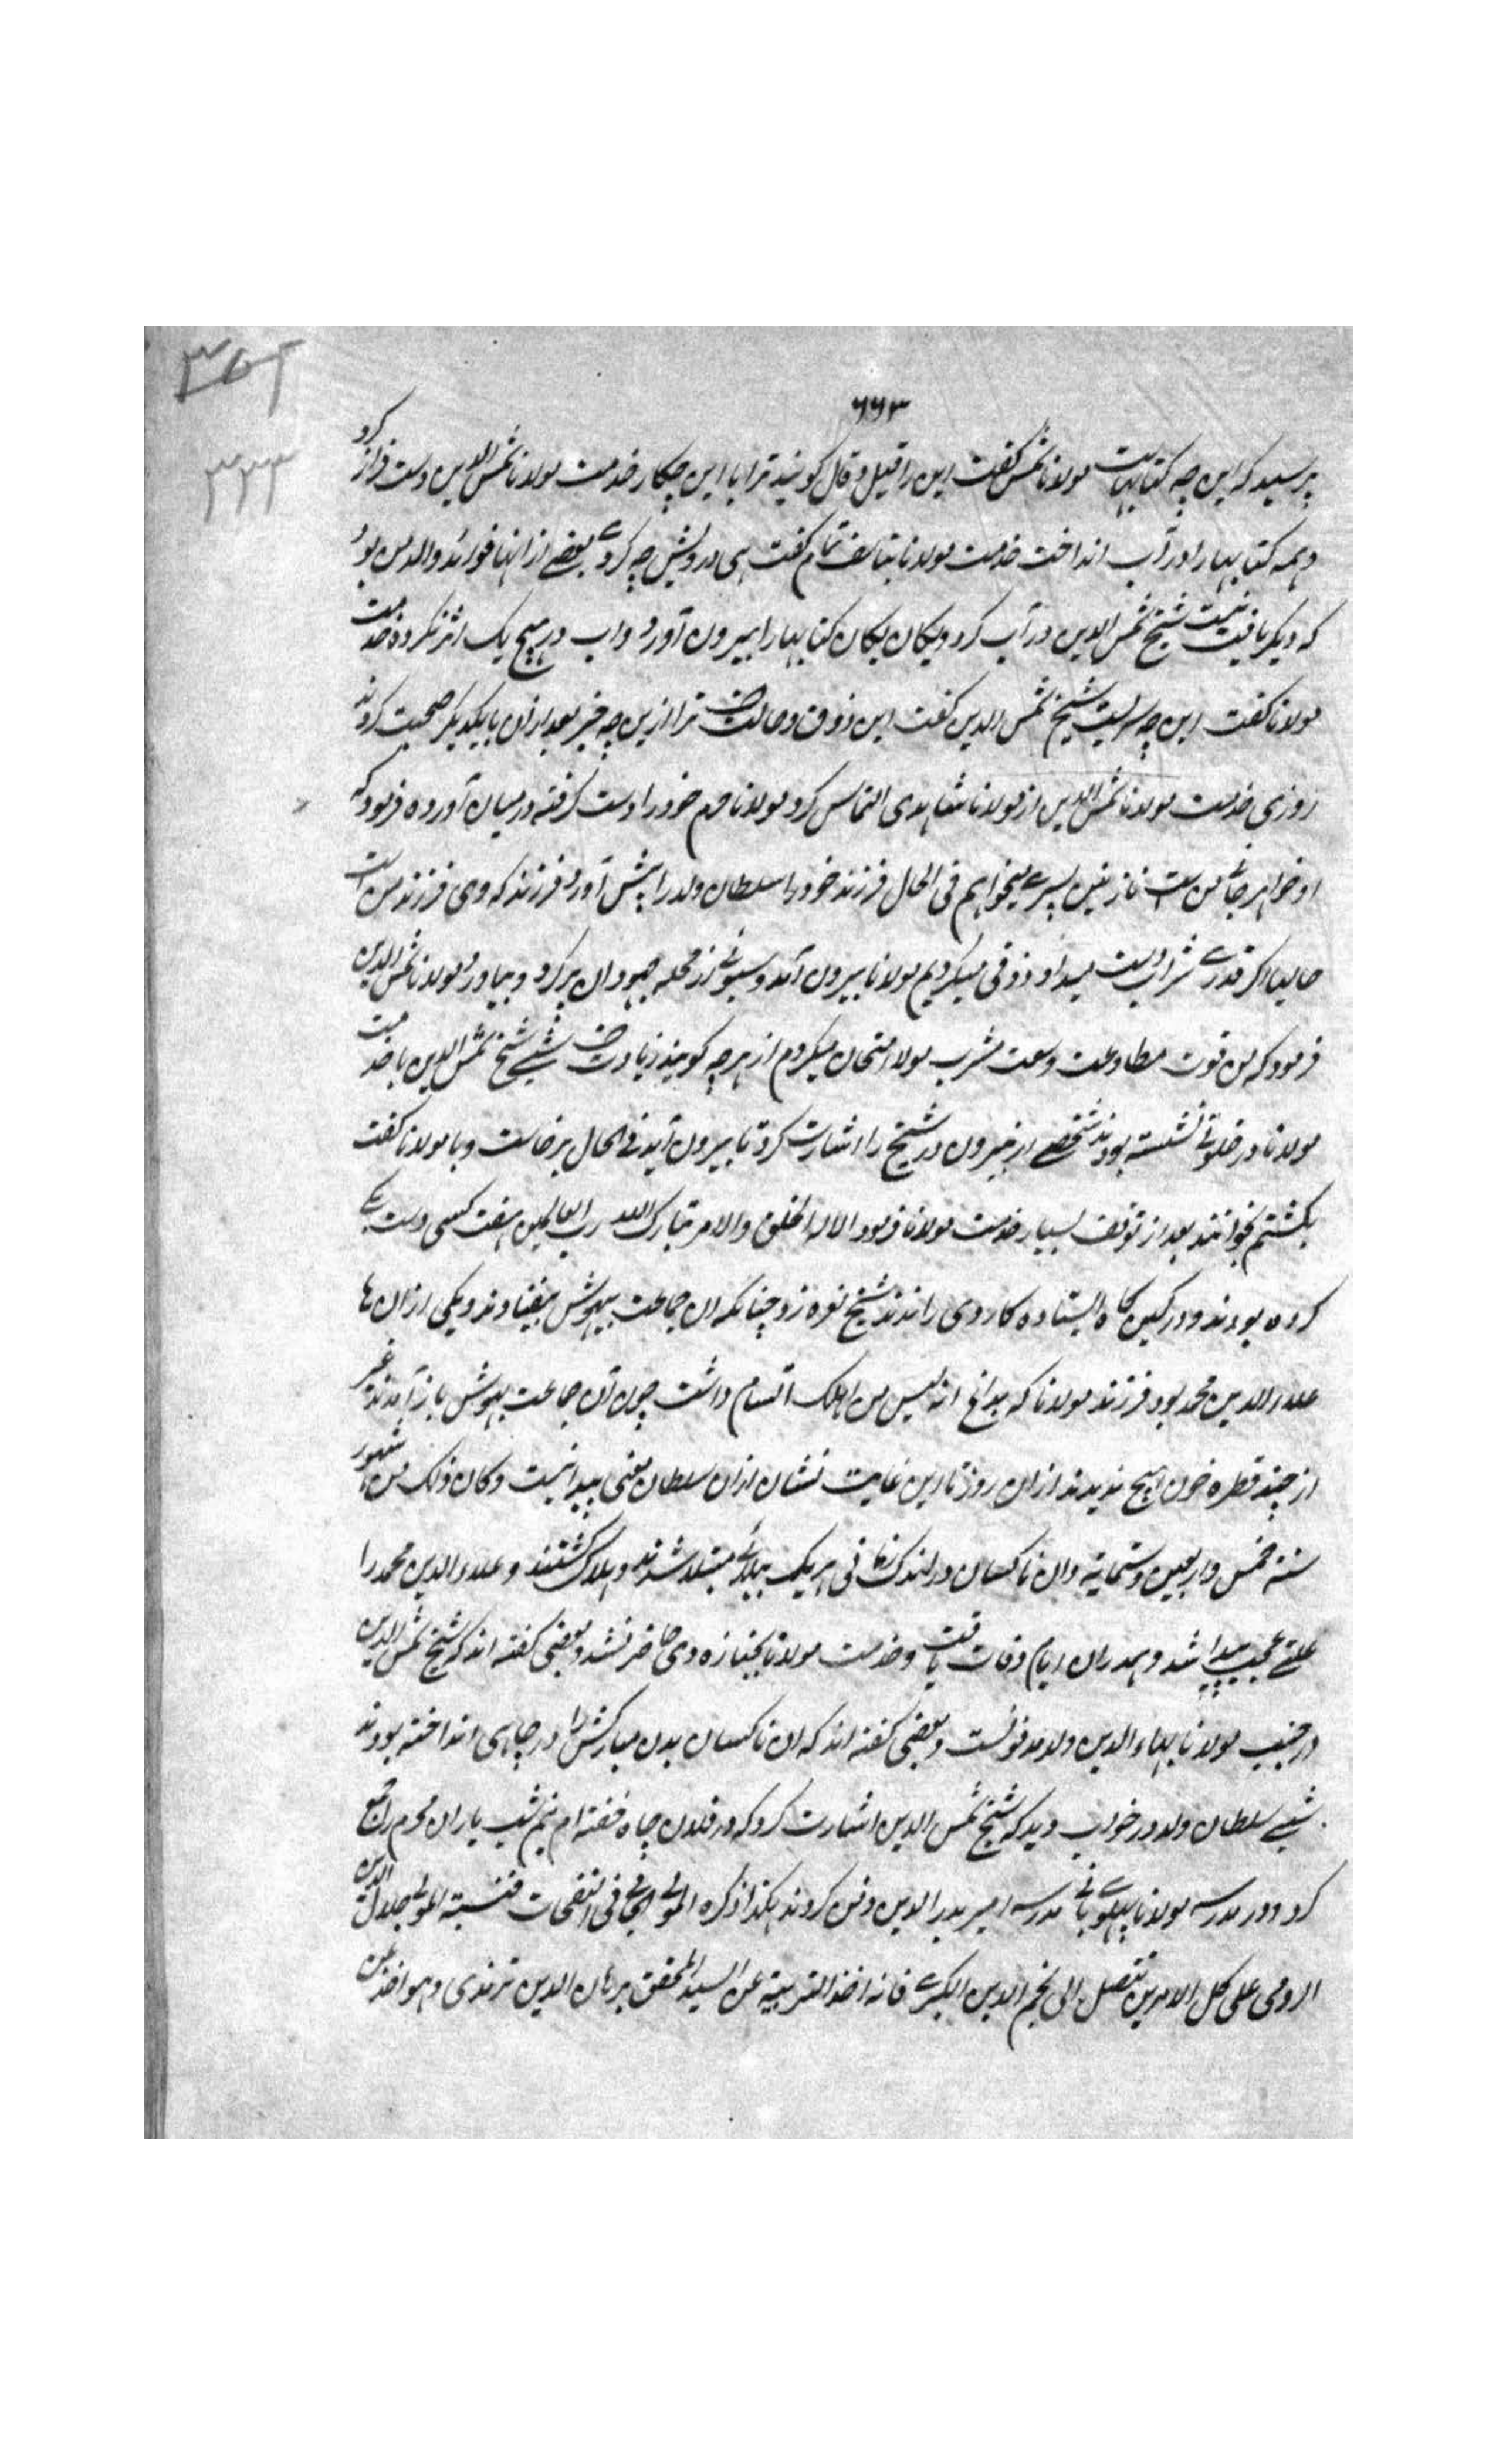 ۶۶۳
پرسید که این چه کتابهاست مولانا شمس گفت این را قیل و قال گویند ترا با این چکار خدمت مولانا شمس الدین دست فراز کرد
و همه کتابها را در آب انداخت خدمت مولانا بتاسف تمام گفت هی درویش چه کردی بعضے از انها فوائد والد من بود
که دیگر یافت نیست شیخ شمس الدین در آب کرد و یکان یکان کتابها را بیرون آورد و اب در هیچ یک اثر نکرده خدمت
مولانا گفت این چه سر است شیخ شمس الدین گفت این ذوق و حالست ترا ازین چه خبر بعد ازان با یکدیگر صحبت کردند
روزی خدمت مولانا شمس الدین از مولانا شاهدی التماس کرد مولانا حرم خود را دست گرفته درمیان آورده فرمود که
او خواهر جانی من است نازنین پسرے میخواهم فی الحال فرزند خود را سلطان ولد را پیش آورد فرزند که وی فرزند من است
حالیا اگر قدرے شراب دست میداد ذوقی میکردیم مولانا بیرون آمد و سبوئے از محله جهودان پر کرد و بیاورد مولانا شمس الدین
فرمود که من قوت مطاوعت وسعت مشرب مولا امتحان میکردم از هرچه گویند زیادت است شبے شیخ شمس الدین با خدمت
مولانا در خلوتے نشسته بودند شخصے از بیرون در شیخ را اشارت کرد تا بیرون آید فی الحال برخاست و با مولانا گفت
بکشتم بخوانند بعد از توقف بسیار خدمت مولانا فرمود الا له الخلق والامر تبارک الله رب العالمین هفت کسی دست یکے
کرده بودند و در کمین گاه ایستاده کاردی راندند شیخ نعره زد چنانکه ان جماعت بیهوش بیفتادند و یکی ازان ها
علاء الدین محمد بود فرزند مولانا که بداغ انه لیس من اهلک اتسام داشت چون آن جماعت بهوش باز آمدند غیر
از چند قطره خون هیچ ندیدند ازان روز تا این غایت نشان ازان سلطان معنی پیدا نیست و کان ذلک من شهور
سنة خمس و اربعین و ستمایة و ان ناکسان در اندک زمانی هر یک ببلائے مبتلا شدند و هلاک گشتند و علاء الدین محمد را
علتے عجب پیدا شد و همدران ایام وفات یافت و خدمت مولانا بجنازه وی حاضر نشد و بعضی گفته اند که شیخ شمس الدین
در جنب مولانا بهاء الدین ولد مدفونست و بعضی گفته اند که ان ناکسان بدن مبارکش را در چاهی انداخته بودند
شبے سلطان ولد در خواب دید که شیخ شمس الدین اشارت کرد که در فلان چاه خفته ام نیم شب یاران محرم را جمع
کرد و در مدرسه مولانا پهلوے بانی مدرسه امیر بدر الدین دفن کردند هکذا ذکره المولی الجامی فی النفحات فنسبة المولی جلال الدین
الرومی علی کل الامرین تتصل الی نجم الدین الکبرے فانه اخذ التربیة عن السید المحقق برهان الدین ترمذی و هو اخذ عن
۳۳۳